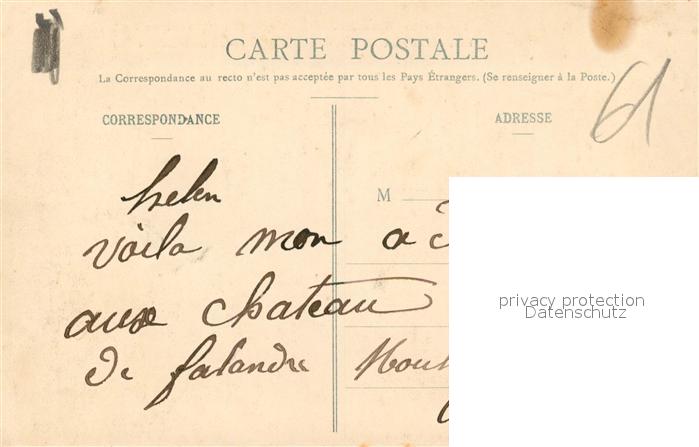 CARTE POSTALE
La Correspondance au recto n'est pas acceptée par tous les Pays Étrangers. (Se renseigner à la Poste.)
61
CORRESPONDANCE
ADRESSE
M
helen
voila mon a
aux chateau
de falandre
privacy protection
Datenschutz